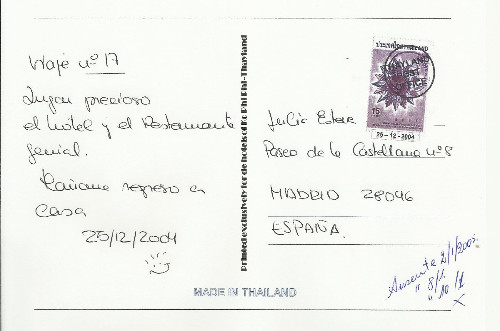 Viaje nº 17
Lugar precioso
el hotel y el restaurante
genial.
Mañana regreso a
casa
25/12/2004
Printed exclusively for the hotels of Ko Phi Phi-Thayland
MADE IN THAILAND
ประเทศไทย THAILAND
THAILAND
POST
OFFICE
15
26-12-2004
Julia Estera
Paseo de la Castellana nº 8
MADRID 28046
ESPAÑA.
Ausente 2/1/2005
" 8/1
" 10/1
X